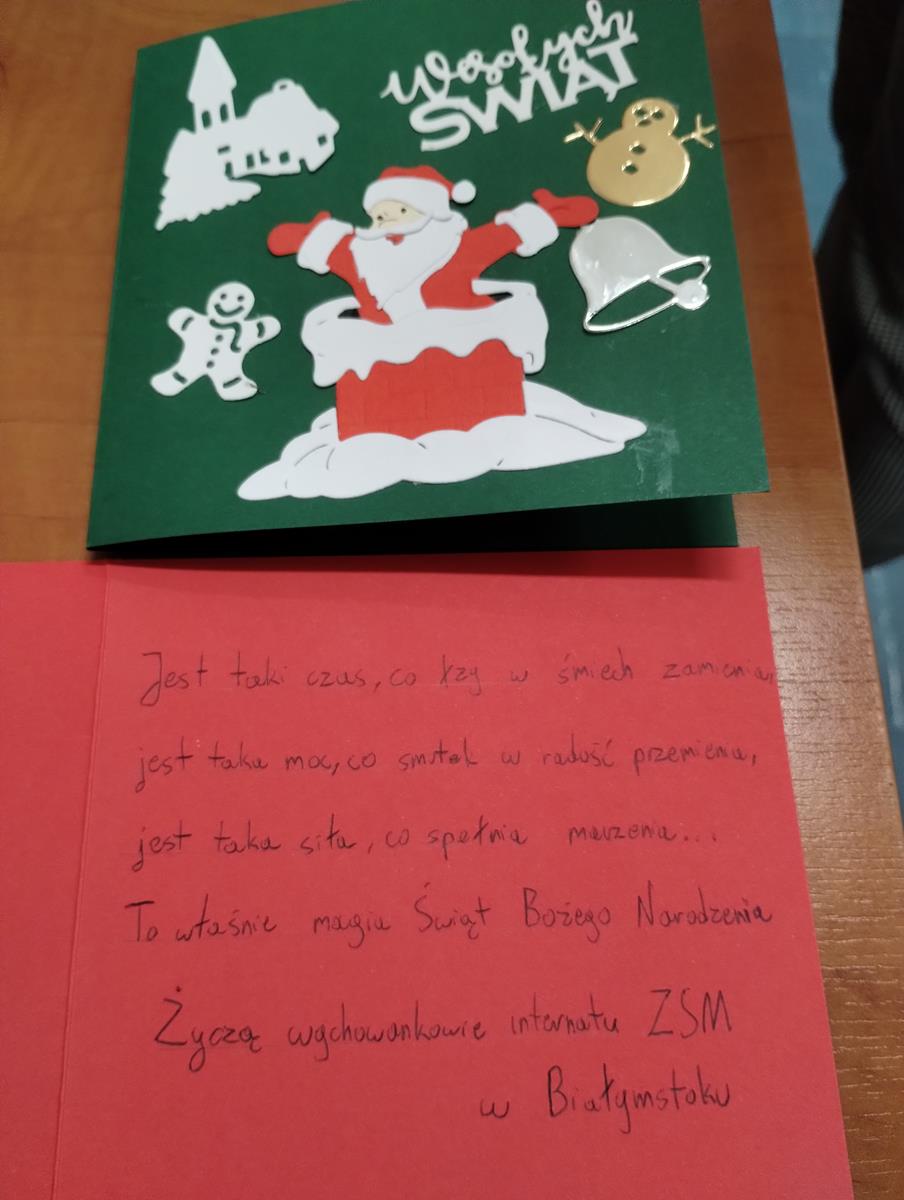 Wesołych
ŚWIĄT
Jest taki czas, co łzy w śmiech zamienia,
jest taka moc, co smutek w radość przemienia,
jest taka siła, co spełnia marzenia...
To właśnie magia Świąt Bożego Narodzenia
Życzą wychowankowie internatu ZSM
w Białymstoku